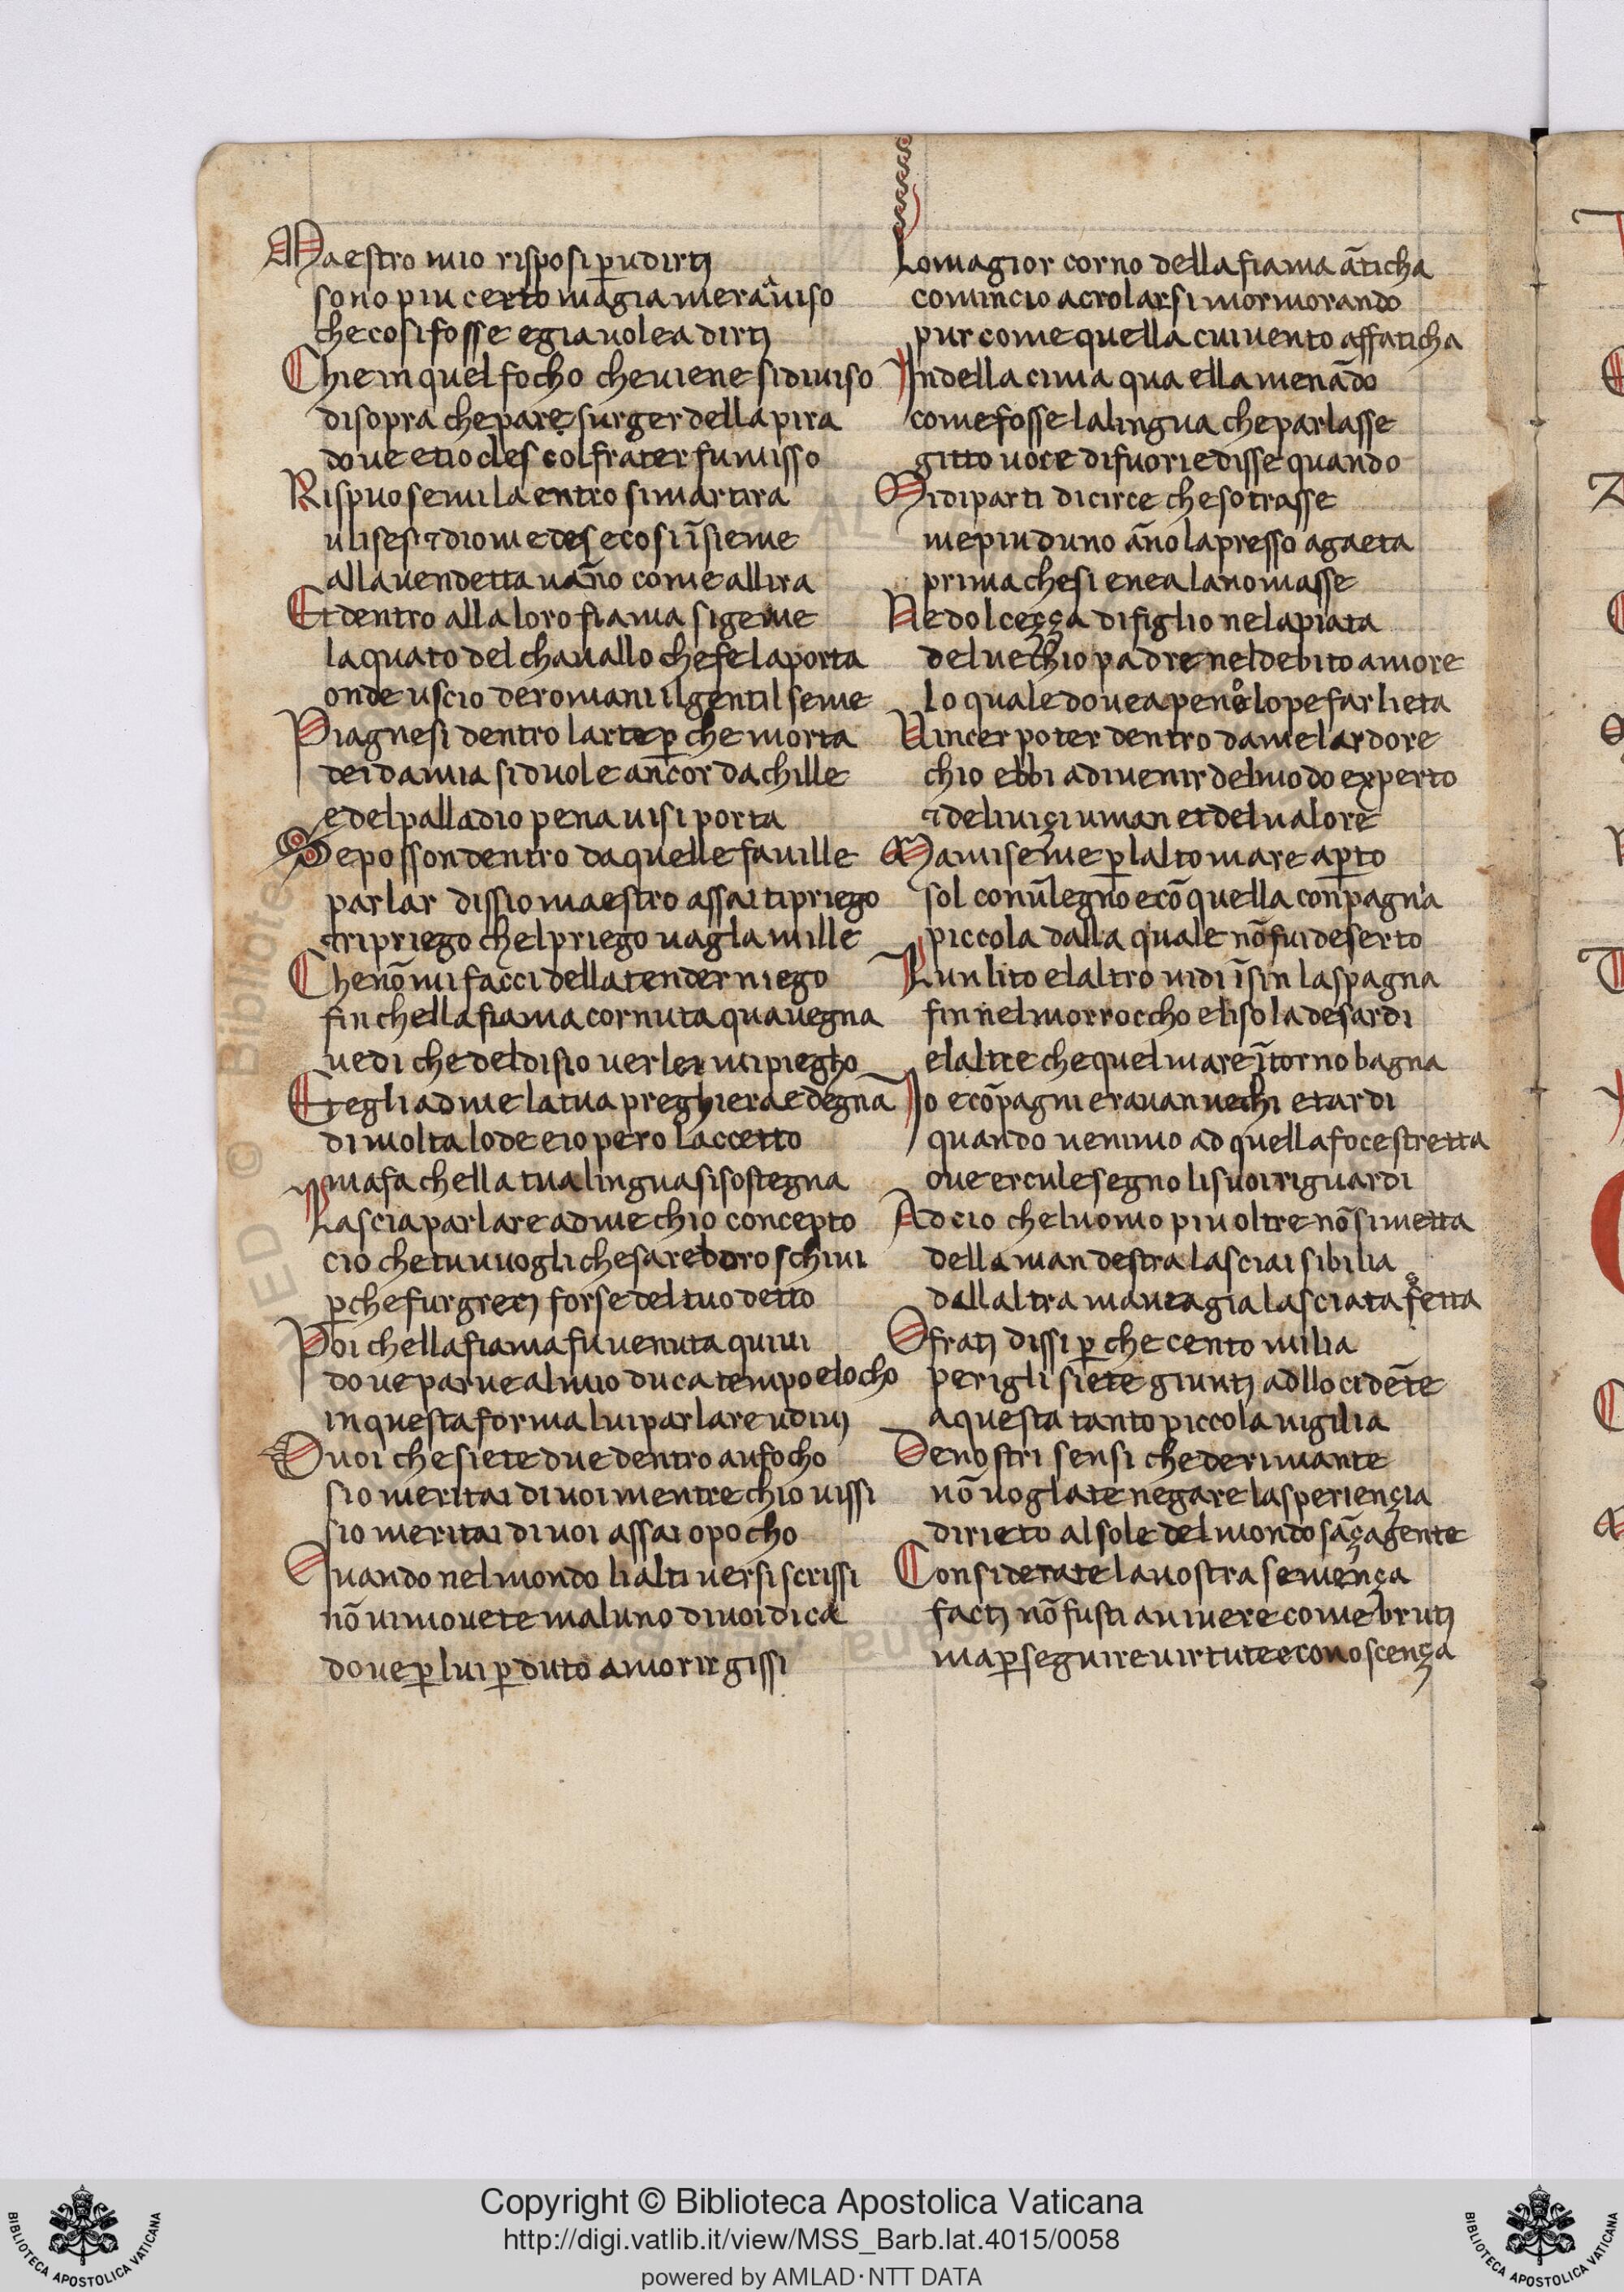 Maestro mio risposi p̲ udirti
sono piu certo magia mera auiso
che cosi fosse e gia volea dirti
Chi e in quel focho che uiene si diuiso
disopra che pare surger della pira
doue etiocles col frater fu misso
Rispuosemi la entro si martira
ulises ⁊ diomedes e cosi īsieme
alla uendetta uāno come allira
Et dentro alla loro fiama si geme
laquato del chauallo che fe la porta
onde uscio de romani il gentil seme
Piagnesi dentro larte p̲ che morta
deidamia si duole ancor dachille
e del palladio pena uisi porta
Se posson dentro da quelle fauille
parlar dissio maestro assai ti priego
⁊ ripriego chel priego uagla mille
Che nō mi facci dellatender niego
fin chella fiama cornuta qua uegna
uedi che del disio uer lei mi piegho
Et egli ad me la tua preghiera e degna
di molta lode e io pero laccetto
ma fa chella tua lingua si sostegna
Lascia parlare ad me chio concepto
cio che tu uuogli che sarebboro schiui
p̲che fur greci forse del tuo detto
Poi chella fiama fu uenuta quiui
doue parue al mio duca tempo e locho
in questa forma lui parlare udiui
O uoi che siete due dentro a un focho
sio meritai di uoi mentre chio uissi
sio meritai di uoi assai o pocho
Quando nel mondo li alti uersi scrissi
nō ui mouete ma luno di uoi dica
doue p̲ lui p̲duto a morir gissi
Lo magior corno della fiama āticha
comincio a crolarsi mormorando
pur come quella cui uento affaticha
Indella cima qua ella menādo
come fosse la lingua che parlasse
gitto uoce di fuori e disse quando
Mi diparti di circe che sotrasse
me piu duno āno la presso a gaeta
prima che si enea la nomasse
Ne dolceçça di figlio ne la piata
del uechio padre nel debito amore
lo quale douea penolope far lieta
Uincer poter dentro da me lardore
chio ebbi a diuenir del modo experto
⁊ deli uiçi uman et del ualore
Ma mise me p̲ lalto mare ap̲to
sol con ū legno e cō quella conpagna
piccola dalla quale nō fui deserto
Lun lito e laltro uidi īsin la spagna
fin nel morroccho e lisola de sardi
e laltre che quel mare ītorno bagna
Io e cōpagni erauan uechi e tardi
quando uenimo ad quella foce stretta
oue ercule segno li suoi riguardi
Ad cio che luomo piu oltre nō si metta
della man destra lasciai sibilia
dallaltra mauea gia lasciata setta
O frati dissi p̲ che cento milia
perigli siete giunti ad llocidēte
a questa tanto piccola uigilia
De nostri sensi che de rimante
nō uoglate negare lasperiençia
dirieto al sole del mondo sāça gente
Considerate la uostra semença
facti nō fusti a uiuere come bruti
ma p̲ seguire uirtute e conoscença
Copyright © Biblioteca Apostolica Vaticana
http://digi.vatlib.it/view/MSS_Barb.lat.4015/0058
powered by AMLAD·NTT DATA
BIBLIOTECA APOSTOLICA VATICANA
BIBLIOTECA APOSTOLICA VATICANA